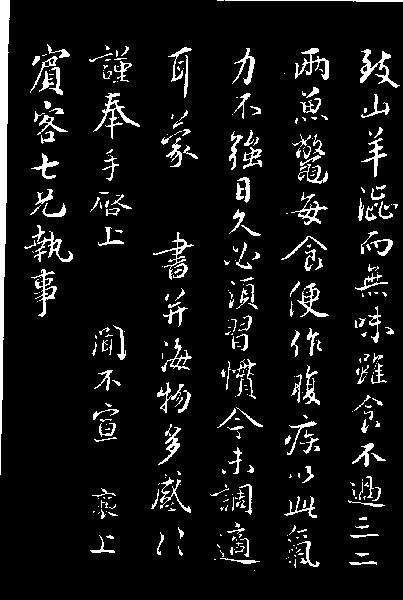 致山羊澁而無味雖食不過三二
兩魚鼈每食便作腹疾以此氣
力不強日久必須習慣今未調適
耳蒙 書并海物多感〻
謹奉手啓上 聞不宣 襄上
賓客七兄執事